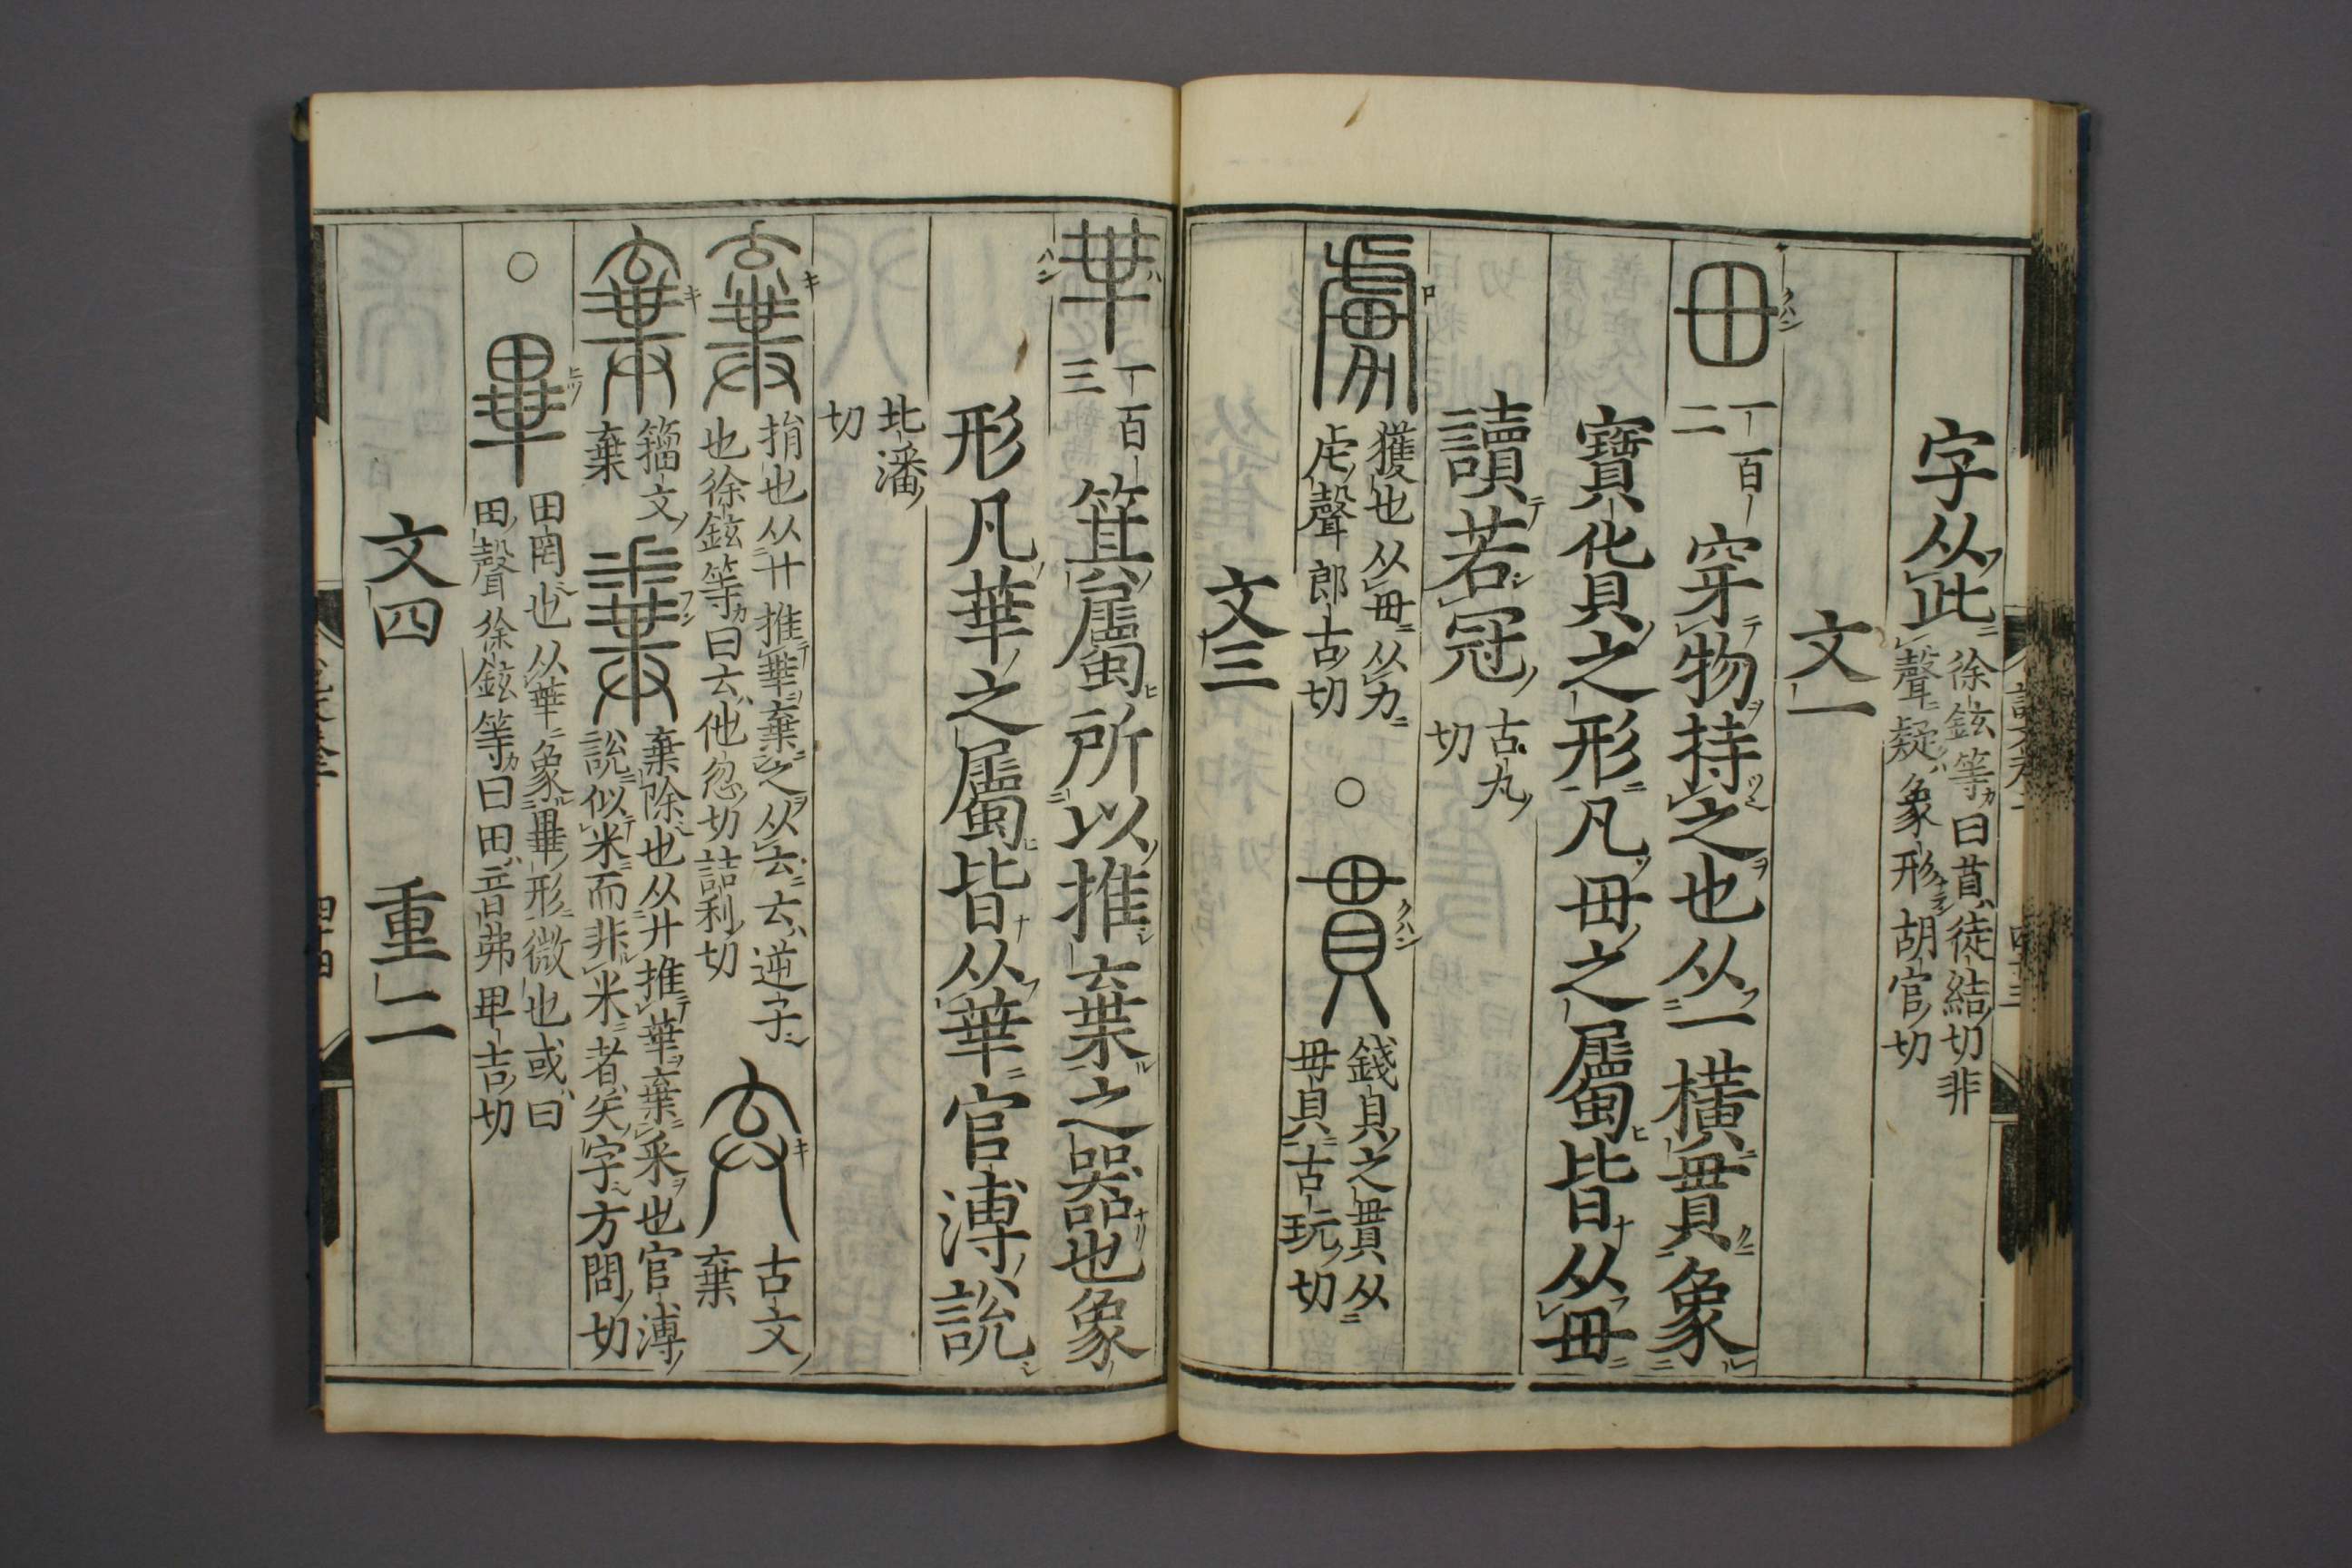 字从此徐鉉等曰苜徒結切非
聲疑象形胡官切
文一
毌 一百二 穿物持之也从一橫貫象
寶貨之形凡毌之屬皆从毌
讀若冠古丸切
虜 獲也从毌从力
虍聲郎古切
○ 貫 錢貝之貫从
毌貝古玩切
文三
𠦒 一百三 箕屬所以推棄之器也象
形凡𠦒之屬皆从𠦒官溥說
北潘切
棄 捐也从廾推𠦒棄之从𠫓𠫓逆子
也徐鉉等曰𠫓他忽切詰利切
古文棄
籀文棄
糞 棄除也从廾推𠦒棄釆也官溥
說似米而非米者矢字方問切
○
畢 田罔也从𠦒象畢形微也或曰
田聲徐鉉等曰田音弗卑吉切
文四 重二